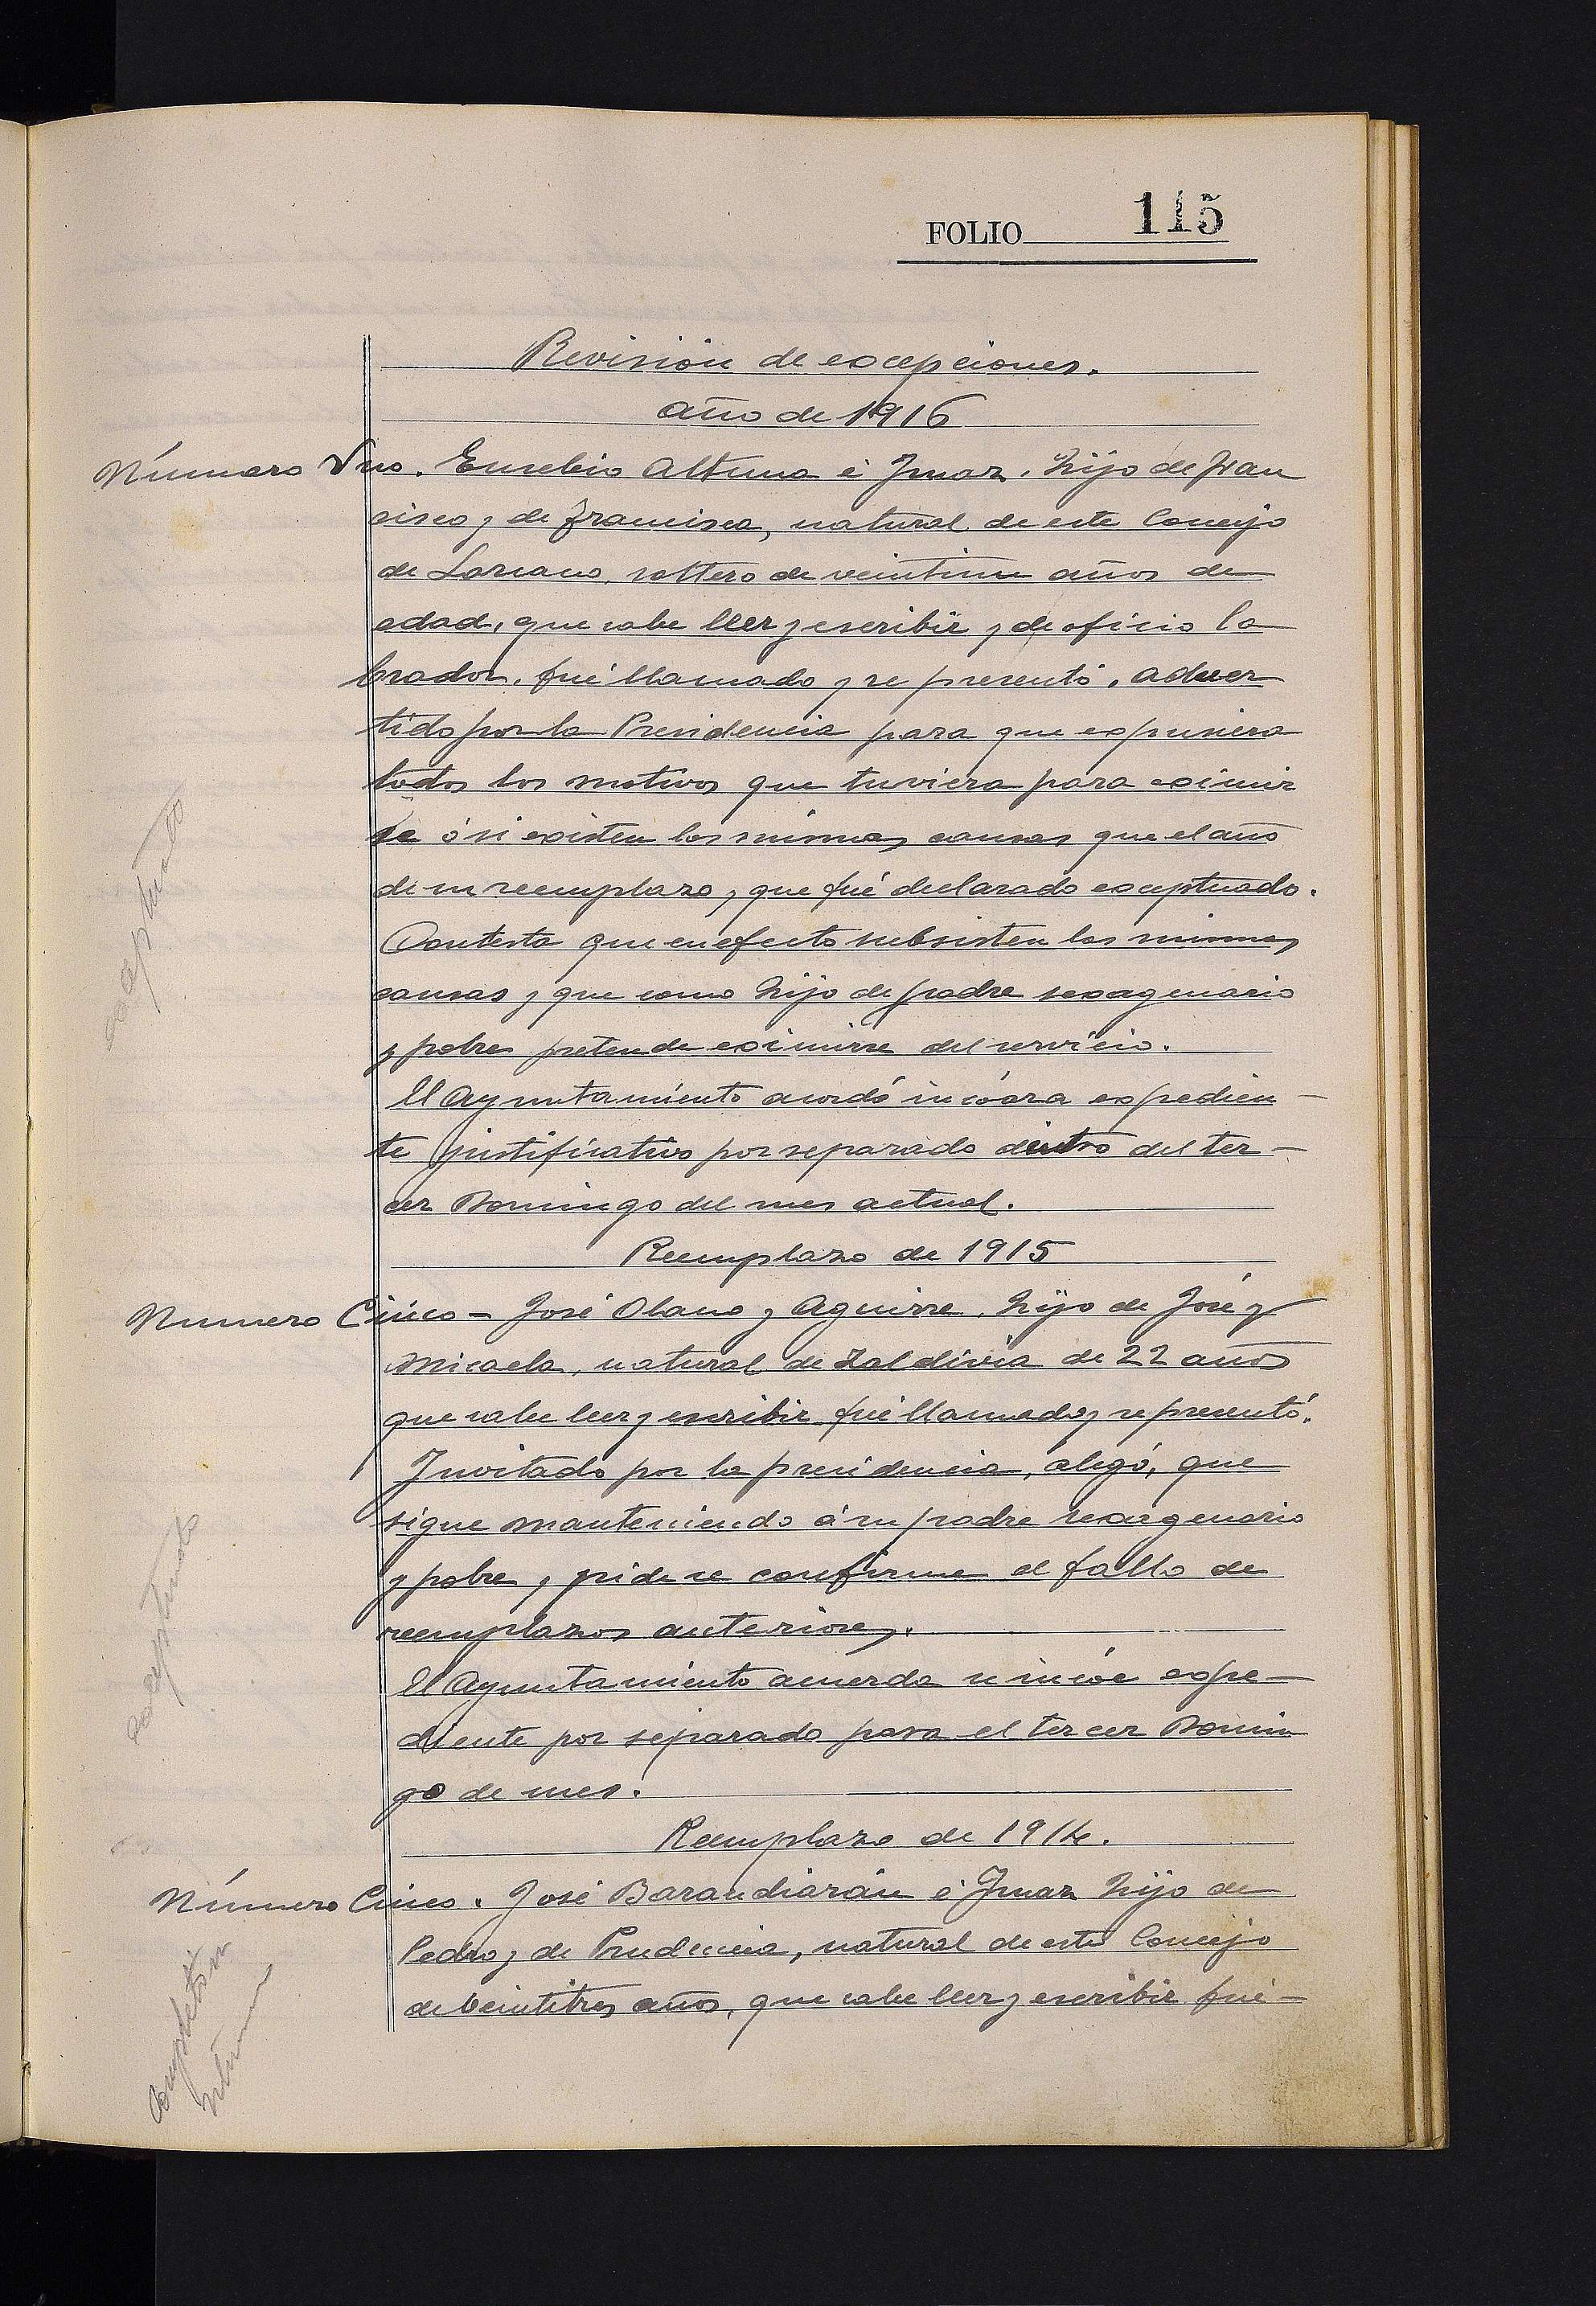 FOLIO 115
Revisión de excepciones.
año de 1916
Número Uno. Eusebio Altuna é Imaz, hijo de Fran
cisco y de Francisca, natural de este Concejo
de Lazcano, soltero de veintiun años de
edad, que sabe leer y escribir y de oficio la
brador, fué llamado y se presentó, adver
tido por la Presidencia para que expusiera
todos los motivos que tuviera para eximir
se ó si existen las mismas causas que el año
de su reemplazo, que fué declarado exceptuado.
exceptuado
Contesta que en efecto subsisten las mismas
causas y que como hijo de padre sexagenario
y pobre pretende eximirse del servicio.
El Ayuntamiento acordó incoara expedien-
te justificativo por separado dentro del ter-
cer Domingo del mes actual.
Reemplazo de 1915
Numero Cinco - José Olano y Aguirre, hijo de José y
Micaela, natural de Zaldivia de 22 años
que sabe leer y escribir fué llamado y se presentó.
Invitado por la presidencia, alegó, que
sigue manteniendo á su padre sexagenario
y pobre y pide se confirme el fallo de
exceptuado
reemplazos anteriores.
El Ayuntamiento acuerda se incóe expe-
diente por separado para el tercer Domin
go de mes.
Reemplazo de 1914.
Número Cinco. José Barandiarán é Imaz hijo de
Pedro y de Prudencia, natural de este Concejo
de veintitres años, que sabe leer y escribir fué-